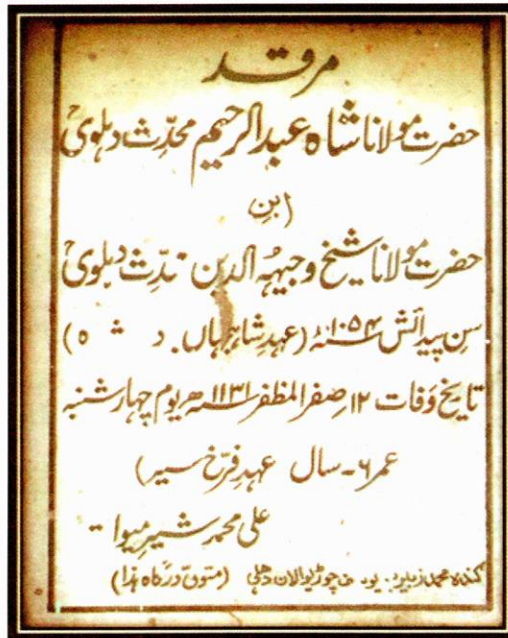 مرقد
حضرت مولانا شاہ عبدالرحیم محدّث دہلویؒ
(بن)
حضرت مولانا شیخ وجیہُ الدین دہلویؒ
سن پیدائش ۱۰۵۴ھ (عہدِ شاہجہاں
تاریخ وفات ۱۲ صفر المظفر ۱۱۳۱ھ یوم چہار شنبہ
عمر سال عہدِ فرّخ سیر)
علی محمد شیرِ میوات
کندہ محمد چوڑیوالان دھلی (متولی درگاہ ہذا)